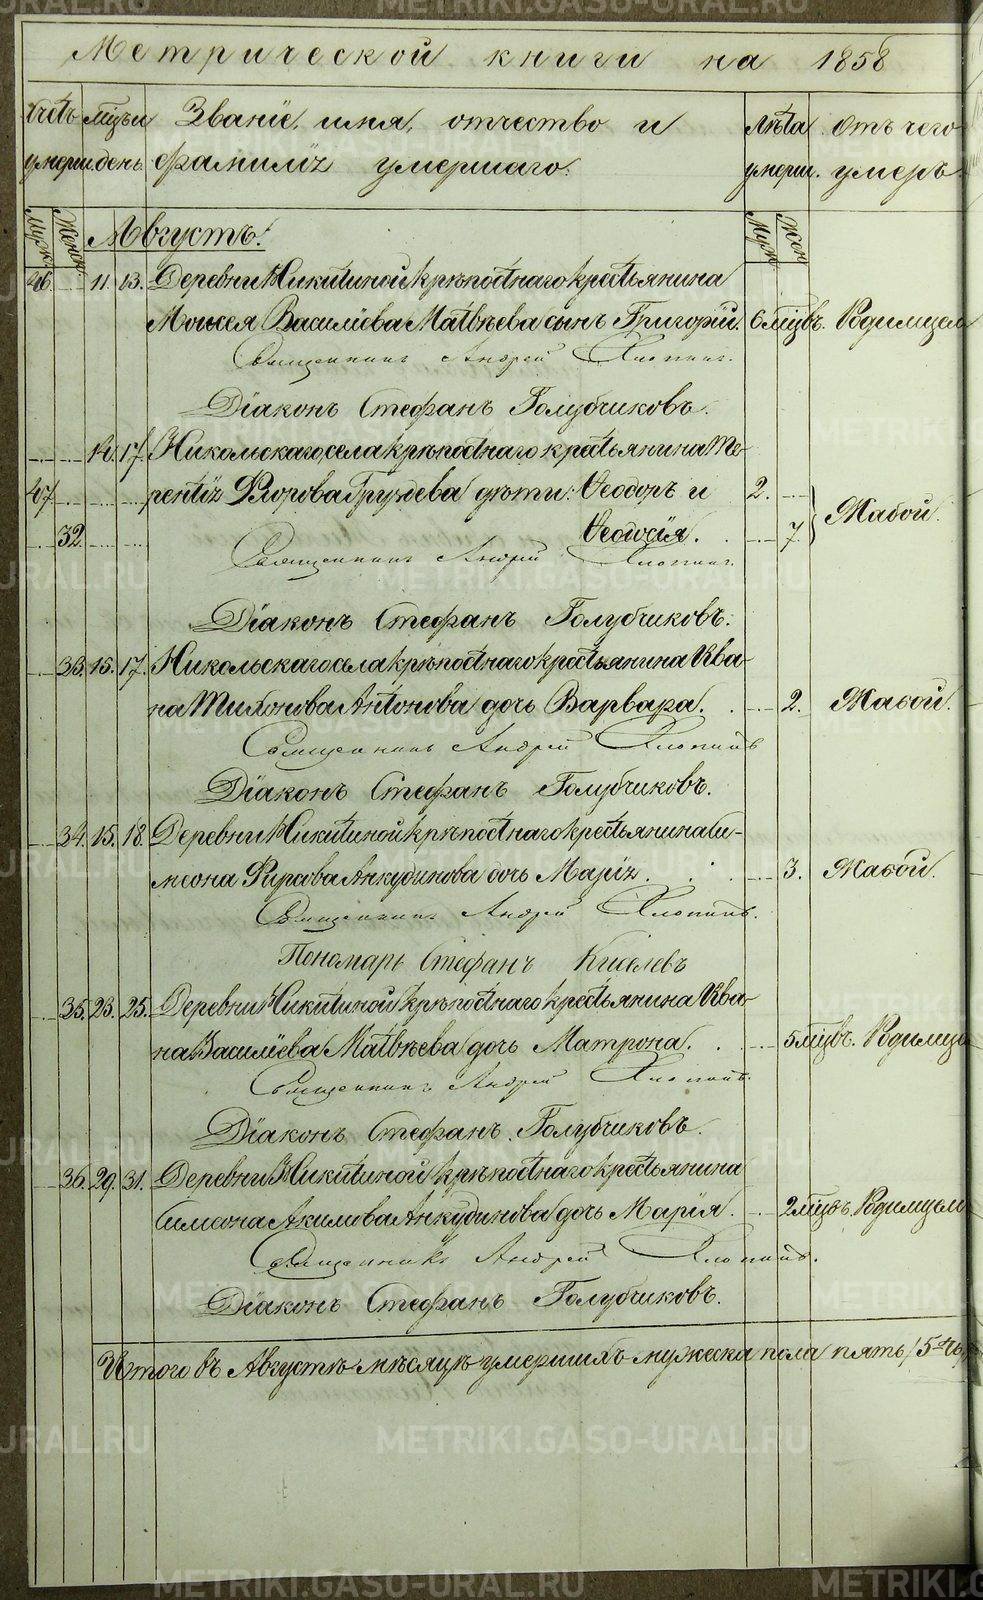 Метрической книги на 1858
Счетъ мѣсъ и Званіе, имя, отчество и Лѣта Отъ чего
умерш. день. фамилія умершаго. умерш. умеръ.
Муж. Женск. Августъ. Муж. Жен.
46. 11. 13. Деревни Никитиной крѣпостнаго крестьянина
Моисея Василіева Матвѣева сынъ Григорій. 6 мѣцвъ. Родимцем
Священникъ Андрей Хлопинъ.
Діаконъ Стефанъ Голубчиковъ.
14. 17. Никольскаго села крѣпостнаго крестьянина Те-
47. рентія Флорова Груздева дѣти: Ѳеодоръ и 2.
32. Ѳеодосія. 7. Жабой.
Священникъ Андрей Хлопинъ.
Діаконъ Стефанъ Голубчиковъ.
33. 15. 17. Никольскаго села крѣпостнаго крестьянина Ива-
на Тихонова Антонова дочь Варвара. 2. Жабой.
Священникъ Андрей Хлопинъ
Діаконъ Стефанъ Голубчиковъ.
34. 15. 18. Деревни Никитиной крѣпостнаго крестьянина Си-
меона Фирсова Анкудинова дочь Марія. 3. Жабой.
Священникъ Андрей Хлопинъ.
Пономарь Стефанъ Киселевъ
35. 23. 25. Деревни Никитиной крѣпостнаго крестьянина Ива-
на Василіева Матвѣева дочь Матрона. 5 мѣцвъ. Родимце
Священникъ Андрей Хлопинъ.
Діаконъ Стефанъ Голубчиковъ.
36. 29. 31. Деревни Никитиной крѣпостнаго крестьянина
Симеона Акимова Анкудинова дочь Марія. 2 мѣцвъ. Родимцем
Священникъ Андрей Хлопинъ.
Діаконъ Стефанъ Голубчиковъ.
Итого въ Августѣ мѣсяцѣ умершихъ мужеска пола пять / 5
METRIKI.GASO-URAL.RU